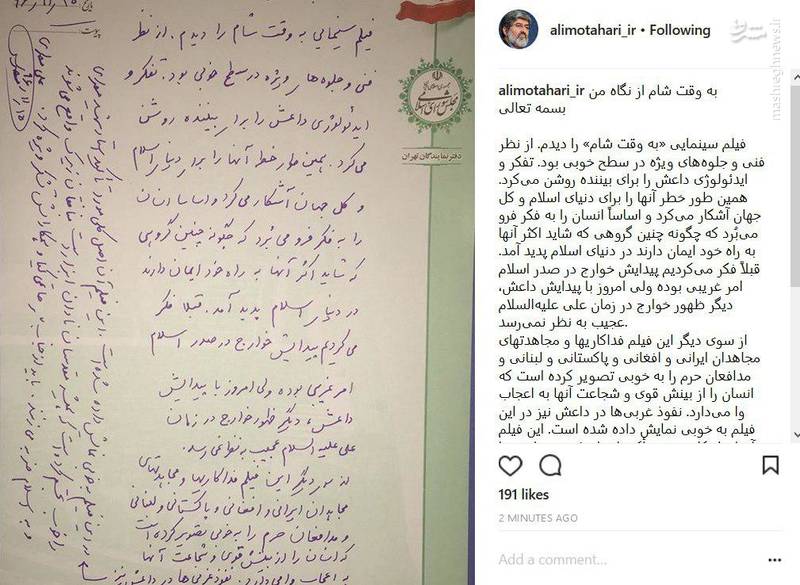 فیلم سینمایی به وقت شام را دیدم. از نظر
فنی و جلوه‌های ویژه در سطح خوبی بود. تفکر و
ایدئولوژی داعش را برای بیننده روشن
می‌کرد. همین طور خطر آنها را برای دنیای اسلام
و کل جهان آشکار می‌کرد و اساسا انسان
را به فکر فرو می‌برد که چگونه چنین گروهی
که شاید اکثر آنها به راه خود ایمان دارند
در دنیای اسلام پدید آمد. قبلا فکر
می‌کردیم پیدایش خوارج در صدر اسلام
امر غریبی بوده ولی امروز با پیدایش
داعش، دیگر ظهور خوارج در زمان
علی علیه السلام عجیب به نظر نمی‌رسد.
از سوی دیگر این فیلم فداکاریها و مجاهدتهای
مجاهدان ایرانی و افغانی و پاکستانی و لبنانی
و مدافعان حرم را به خوبی تصویر کرده است
که انسان را از بینش قوی و شجاعت آنها
به اعجاب وا می‌دارد. نفوذ غربی‌ها در داعش نیز
مجلس شورای اسلامی
دفتر نمایندگان تهران
alimotahari_ir • Following
mashreghnews.ir
alimotahari_ir به وقت شام از نگاه من
بسمه تعالی
فیلم سینمایی «به وقت شام» را دیدم. از نظر
فنی و جلوه‌های ویژه در سطح خوبی بود. تفکر و
ایدئولوژی داعش را برای بیننده روشن می‌کرد.
همین طور خطر آنها را برای دنیای اسلام و کل
جهان آشکار می‌کرد و اساساً انسان را به فکر فرو
می‌بُرد که چگونه چنین گروهی که شاید اکثر آنها
به راه خود ایمان دارند در دنیای اسلام پدید آمد.
قبلاً فکر می‌کردیم پیدایش خوارج در صدر اسلام
امر غریبی بوده ولی امروز با پیدایش داعش،
دیگر ظهور خوارج در زمان علی علیه‌السلام
عجیب به نظر نمی‌رسد.
از سوی دیگر این فیلم فداکاریها و مجاهدتهای
مجاهدان ایرانی و افغانی و پاکستانی و لبنانی و
مدافعان حرم را به خوبی تصویر کرده است که
انسان را از بینش قوی و شجاعت آنها به اعجاب
وا می‌دارد. نفوذ غربی‌ها در داعش نیز در این
فیلم به خوبی نمایش داده شده است. این فیلم
191 likes
2 MINUTES AGO
Add a comment...